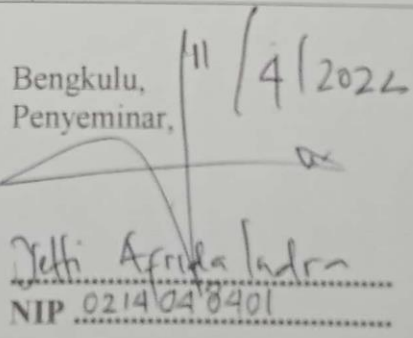 Bengkulu, 11/4/2022
Penyeminar,
Yetti Afrida Indra
NIP 0214048401